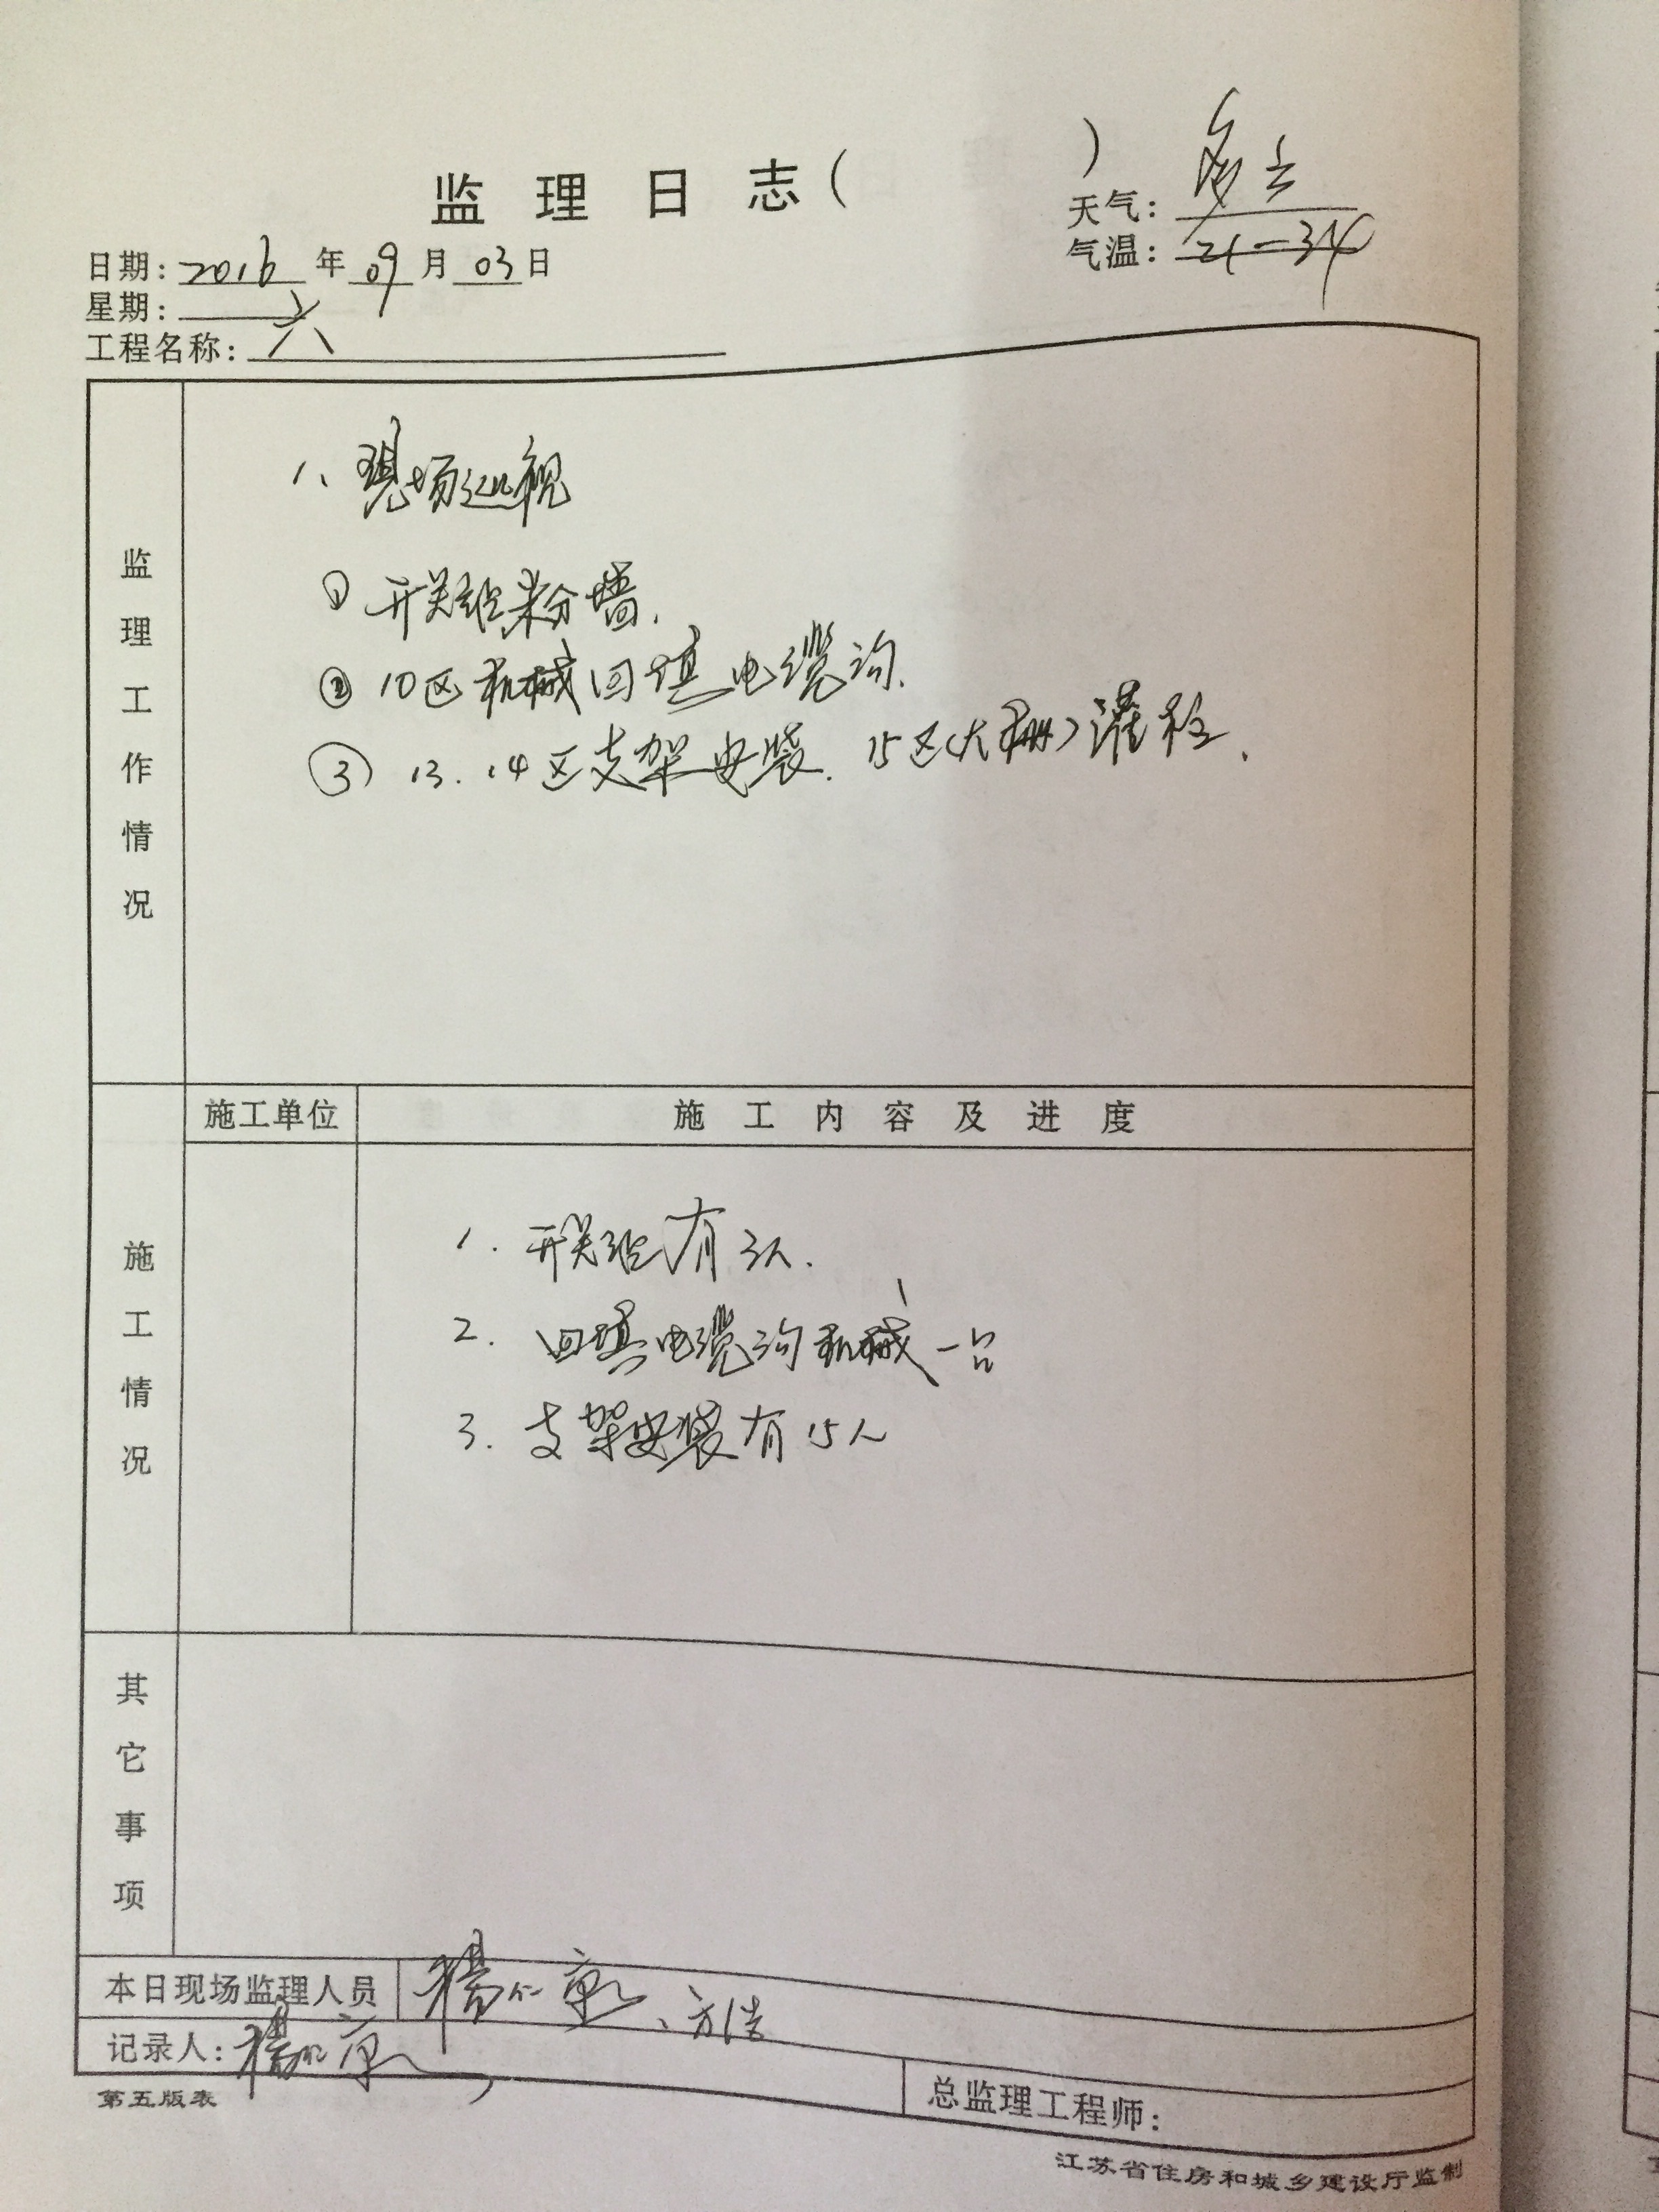 监理日志( )
天气: 多云
日期: 2016 年 09 月 03 日
气温: 21-34
星期: 六
工程名称:
监理工作情况
1、现场巡视
① 开关站粉墙.
② 10区机械回填电缆沟.
③ 13.14区支架安装. 15区(大棚)灌桩.
施工单位
施工内容及进度
施工情况
1. 开关站有3人.
2. 回填电缆沟机械一台
3. 支架安装有15人
其它事项
本日现场监理人员 杨仁
记录人: 杨仁
总监理工程师:
第五版表
江苏省住房和城乡建设厅监制